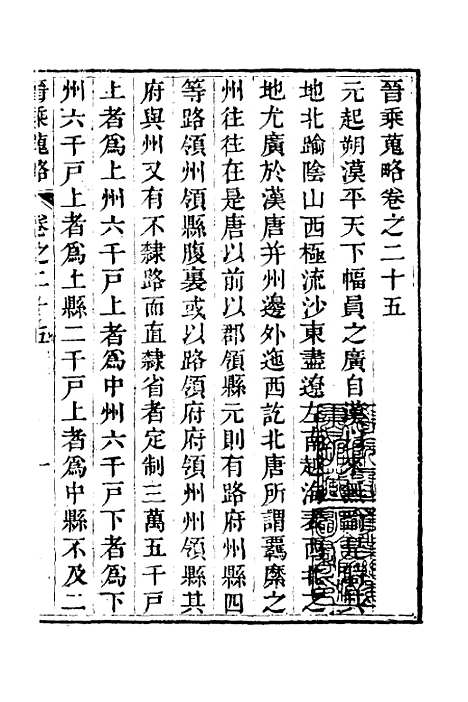 晉乘蒐略卷之二十五
元起朔漠平天下幅員之廣自漢
地北踰陰山西極流沙東盡遼左南越海表西北之
地尤廣於漢唐并州邊外迤西訖北唐所謂羈縻之
州往往在是唐以前以郡領縣元則有路府州縣四
等路領州領縣腹裏或以路領府府領州州領縣其
府與州又有不隸路而直隸省者定制三萬五千戸
上者爲上州六千戸上者爲中州六千戸下者爲下
州六千戸上者爲上縣二千戸上者爲中縣不及二
晉乘蒐略 卷之二十五 一